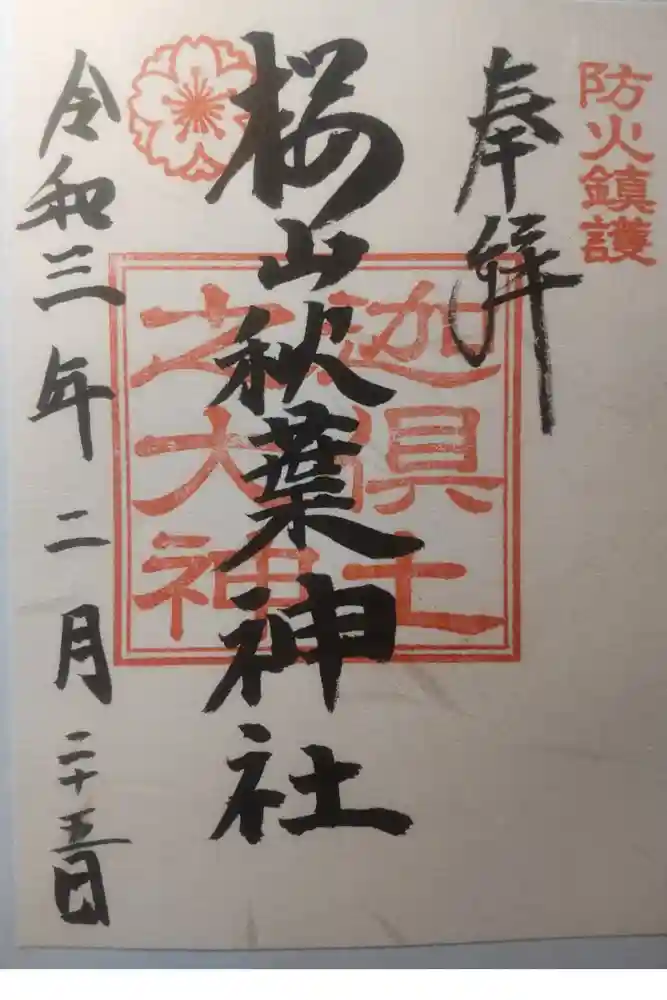 防火鎮護
奉拝
桜山秋葉神社
迦倶土
之大神
令和三年二月二十五日